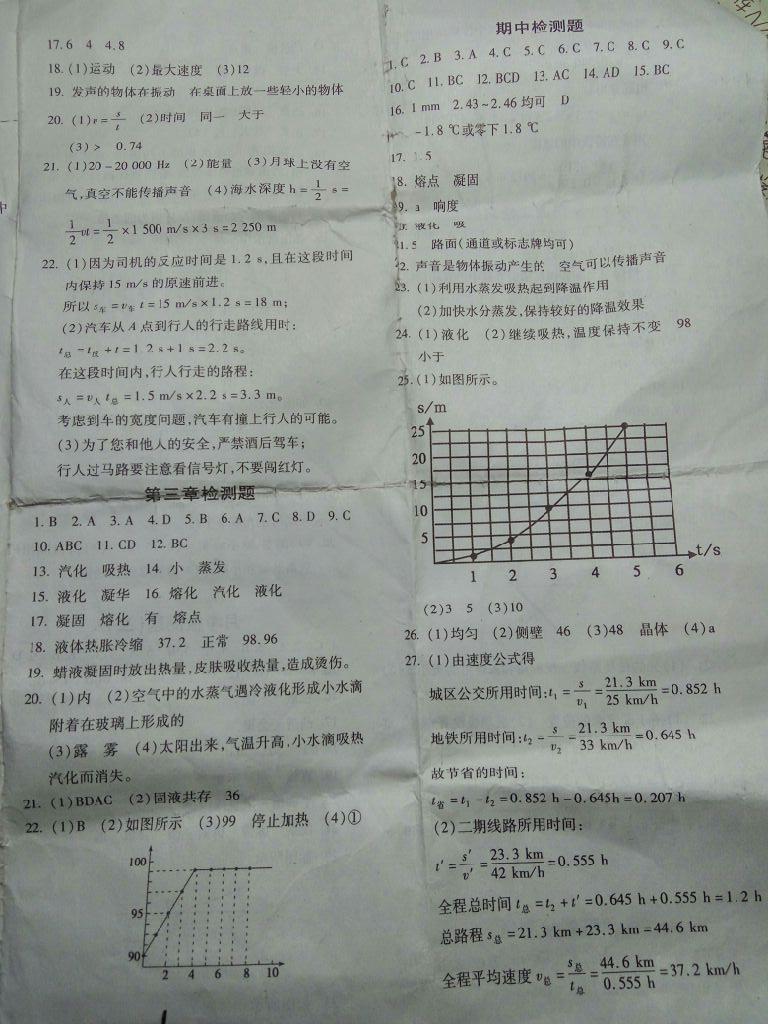 17. 6 4 4.8
18. (1)运动 (2)最大速度 (3)12
19. 发声的物体在振动 在桌面上放一些轻小的物体
20. (1)v=s/t (2)时间 同一 大于
(3)> 0.74
21. (1)20-20 000 Hz (2)能量 (3)月球上没有空
气,真空不能传播声音 (4)海水深度 h=1/2 s=
1/2 vt=1/2×1 500 m/s×3 s=2 250 m
22. (1)因为司机的反应时间是1.2 s,且在这段时间
内保持15 m/s的原速前进。
所以 s车=v车 t=15 m/s×1.2 s=18 m;
(2)汽车从A点到行人的行走路线用时:
t总=t反+t=1.2 s+1 s=2.2 s。
在这段时间内,行人行走的路程:
s人=v人 t总=1.5 m/s×2.2 s=3.3 m。
考虑到车的宽度问题,汽车有撞上行人的可能。
(3)为了您和他人的安全,严禁酒后驾车;
行人过马路要注意看信号灯,不要闯红灯。
第三章检测题
1. B 2. A 3. A 4. D 5. B 6. A 7. C 8. D 9. C
10. ABC 11. CD 12. BC
13. 汽化 吸热 14. 小 蒸发
15. 液化 凝华 16. 熔化 汽化 液化
17. 凝固 熔化 有 熔点
18. 液体热胀冷缩 37.2 正常 98.96
19. 蜡液凝固时放出热量,皮肤吸收热量,造成烫伤。
20. (1)内 (2)空气中的水蒸气遇冷液化形成小水滴
附着在玻璃上形成的
(3)露 雾 (4)太阳出来,气温升高,小水滴吸热
汽化而消失。
21. (1)BDAC (2)固液共存 36
22. (1)B (2)如图所示 (3)99 停止加热 (4)①
100
95
90
2 4 6 8 10
期中检测题
1. C 2. B 3. A 4. C 5. C 6. C 7. C 8. C 9. C
10. C 11. BC 12. BCD 13. AC 14. AD 15. BC
16. 1 mm 2.43~2.46均可 D
-1.8 ℃或零下1.8 ℃
17. 1.5
18. 熔点 凝固
19. a 响度
液化 吸
21. 5 路面(通道或标志牌均可)
22. 声音是物体振动产生的 空气可以传播声音
23. (1)利用水蒸发吸热起到降温作用
(2)加快水分蒸发,保持较好的降温效果
24. (1)液化 (2)继续吸热,温度保持不变 98
小于
25. (1)如图所示。
s/m
25
20
15
10
5
1 2 3 4 5 6 t/s
(2)3 5 (3)10
26. (1)均匀 (2)侧壁 46 (3)48 晶体 (4)a
27. (1)由速度公式得
城区公交所用时间:t₁=s/v₁=21.3 km/25 km/h=0.852 h
地铁所用时间:t₂=s/v₂=21.3 km/33 km/h=0.645 h
故节省的时间:
t省=t₁-t₂=0.852 h-0.645h=0.207 h
(2)二期线路所用时间:
t′=s′/v′=23.3 km/42 km/h=0.555 h
全程总时间 t总=t₂+t′=0.645 h+0.555 h=1.2 h
总路程 s总=21.3 km+23.3 km=44.6 km
全程平均速度 v总=s总/t总=44.6 km/0.555 h=37.2 km/h